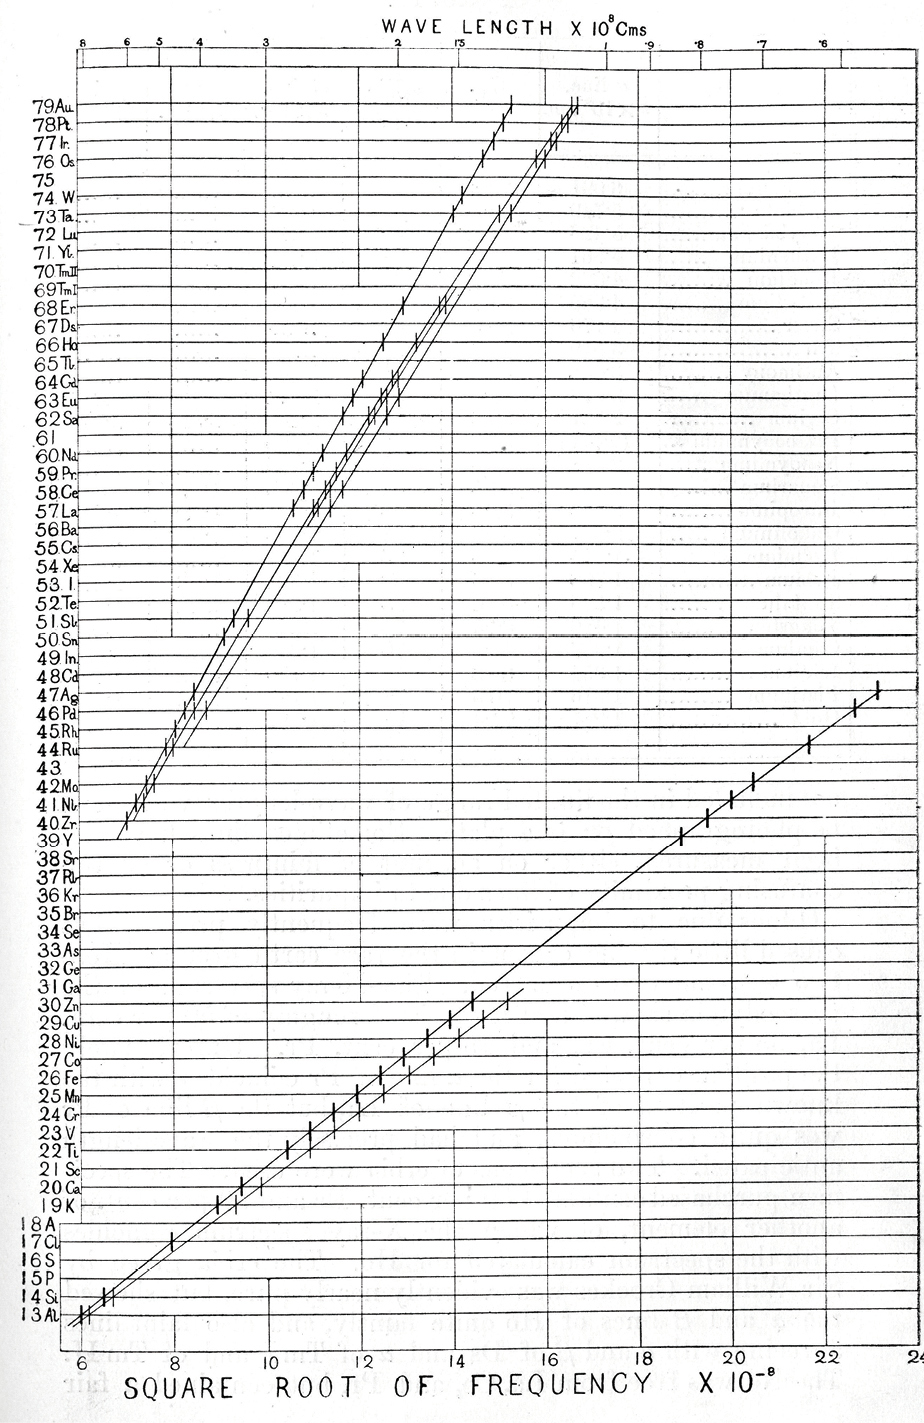 WAVE LENGTH X 10⁸ Cms
8 6 5 4 3 2 1·5 1 ·9 ·8 ·7 ·6
79 Au
78 Pt.
77 Ir.
76 Os
75
74 W
73 Ta.
72 Lu
71 Yb.
70 TmII
69 TmI
68 Er.
67 Ds
66 Ho
65 Tb.
64 Gd
63 Eu
62 Sa
61
60 Nd
59 Pr.
58 Ce
57 La
56 Ba
55 Cs
54 Xe
53 I
52 Te
51 Sb
50 Sn
49 In
48 Cd
47 Ag
46 Pd
45 Rh
44 Ru
43
42 Mo
41 Nb
40 Zr
39 Y
38 Sr
37 Rb
36 Kr
35 Br
34 Se
33 As
32 Ge
31 Ga
30 Zn
29 Cu
28 Ni
27 Co
26 Fe
25 Mn
24 Cr
23 V
22 Ti
21 Sc
20 Ca
19 K
18 A
17 Cl
16 S
15 P
14 Si
13 Al
6 8 10 12 14 16 18 20 22 24
SQUARE ROOT OF FREQUENCY X 10⁻⁸